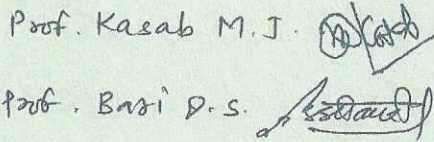 Prof. Kasab M. J.
Prof. Bari D. S.